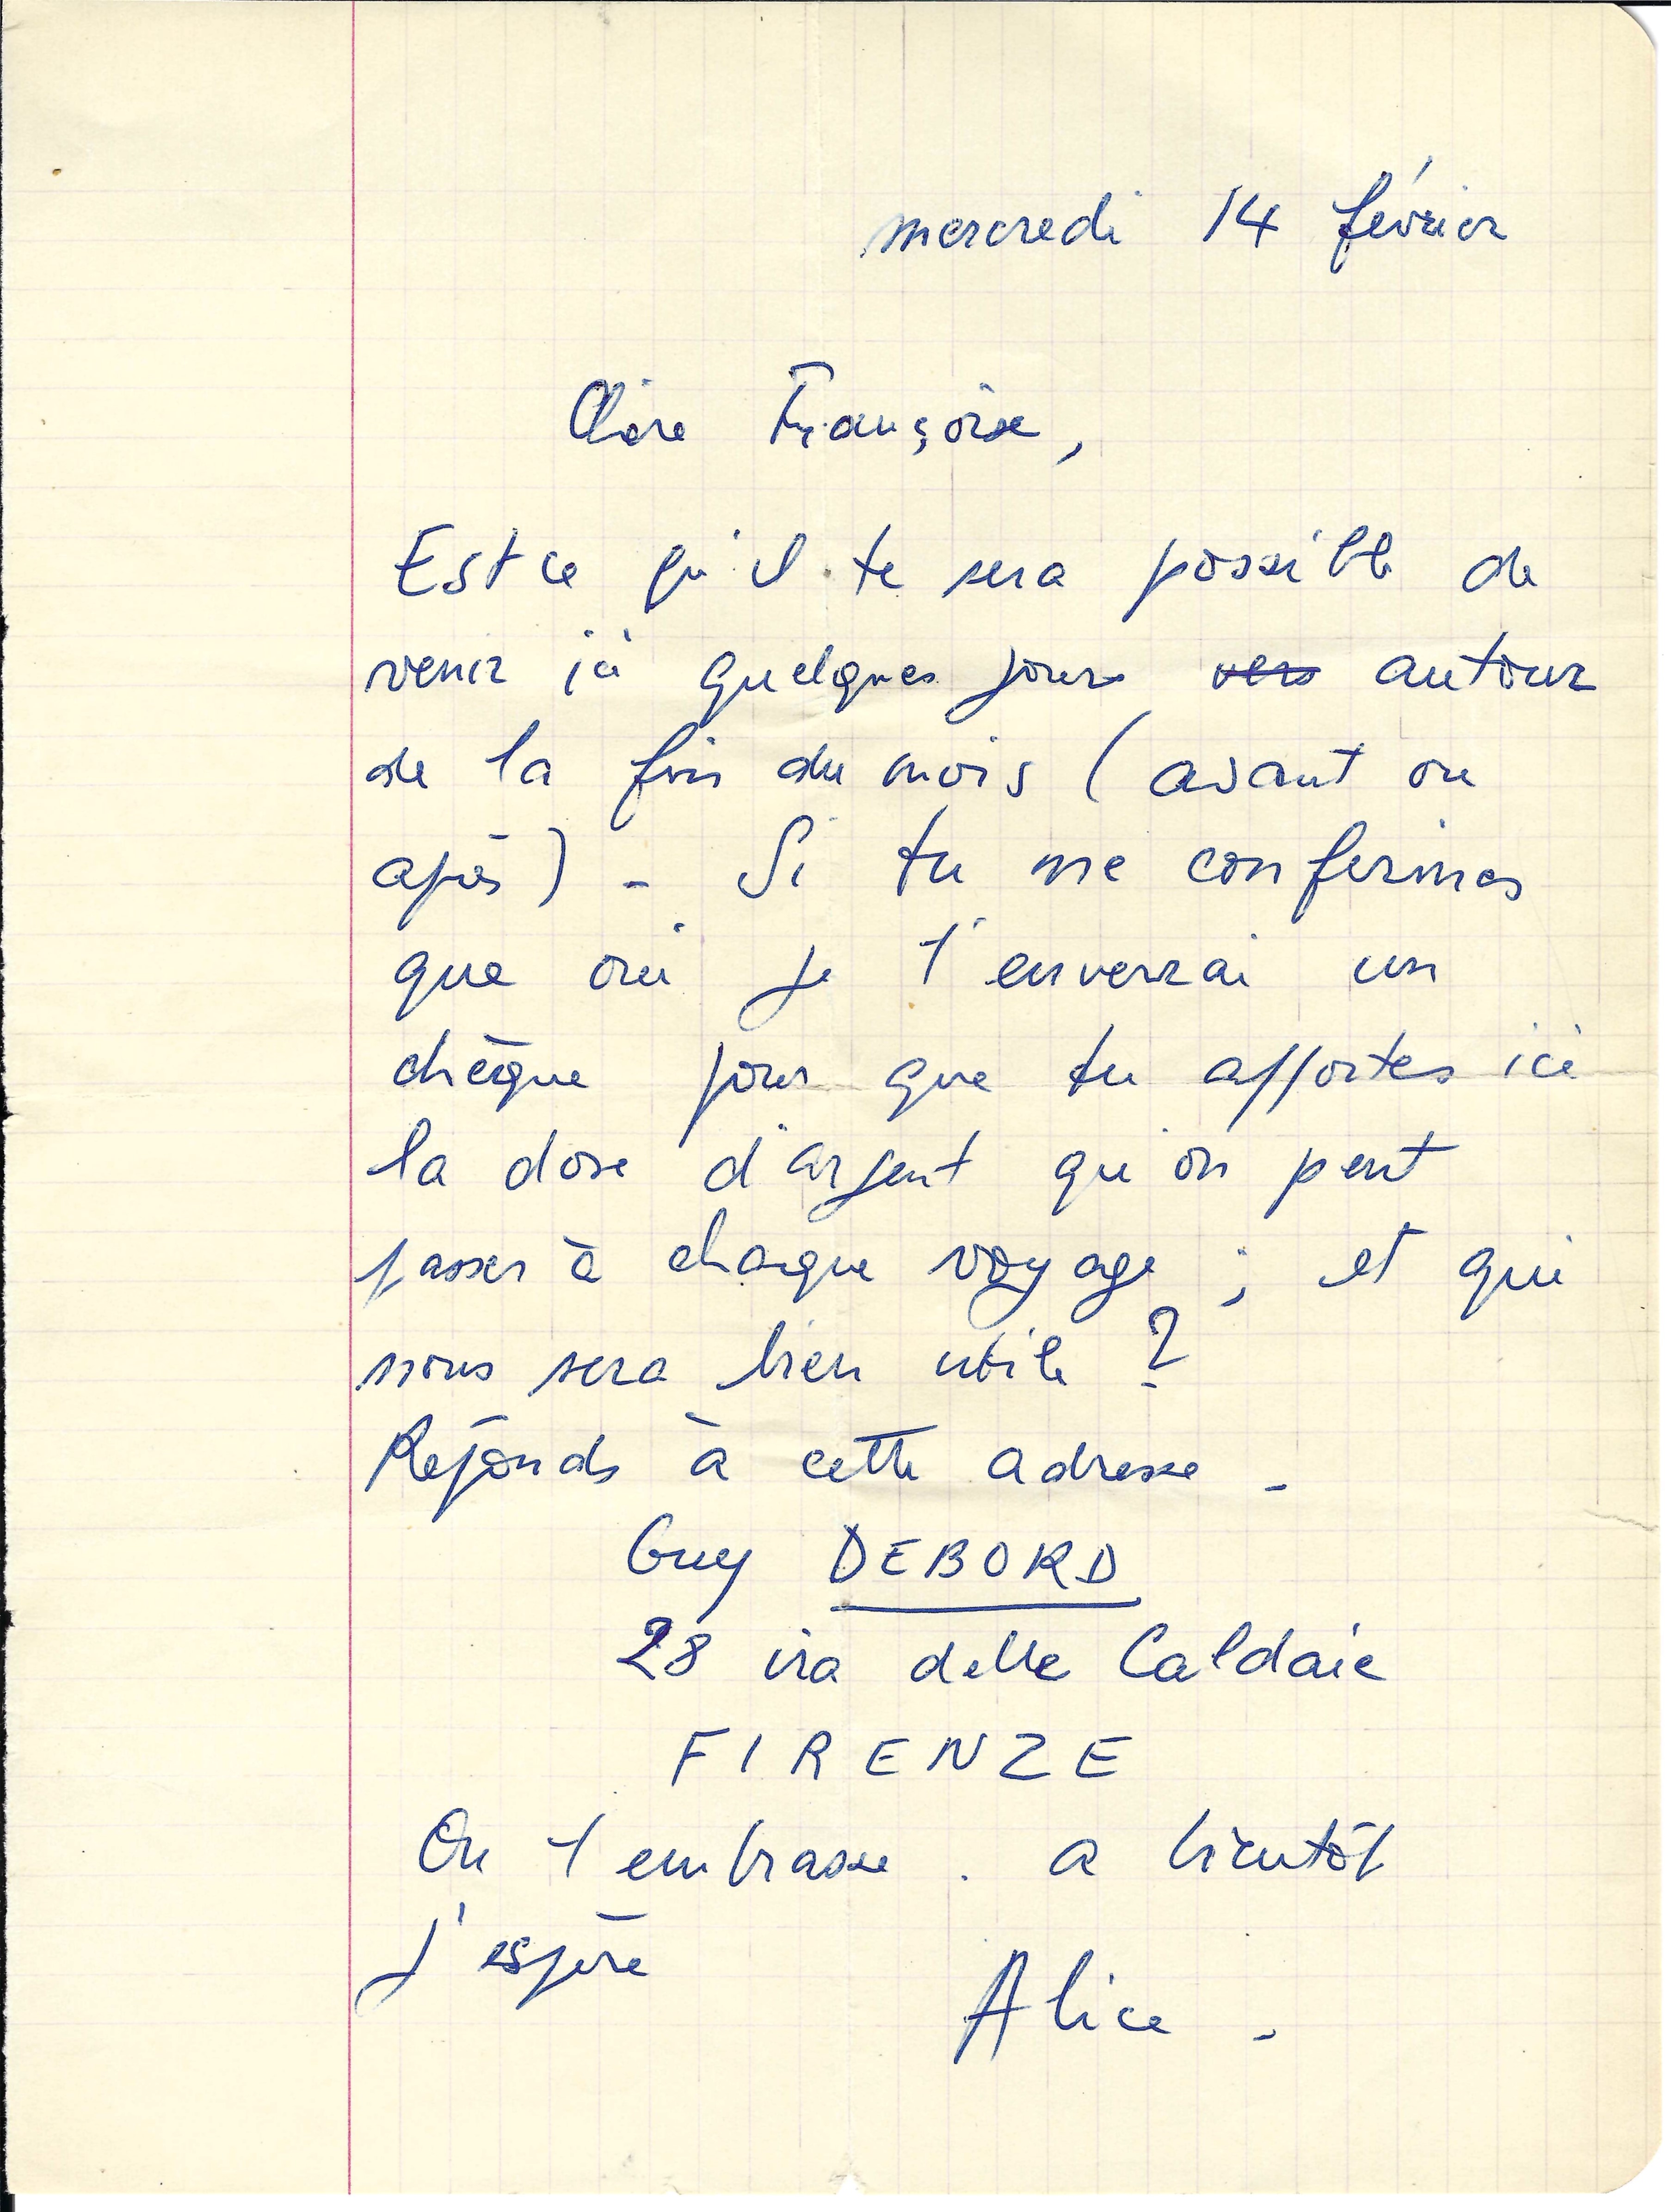 mercredi 14 février
Chère Françoise,
Est ce qu'il te sera possible de
venir ici quelques jours vers autour
de la fin du mois (avant ou
après) - Si tu me confirmes
que oui je t'enverrai un
chèque pour que tu apportes ici
la dose d'argent qu'on peut
passer à chaque voyage ; et qui
nous sera bien utile ?
Réponds à cette adresse -
Guy DEBORD
28 via delle Caldaie
FIRENZE
On t'embrasse . a bientôt
j'espère
Alice -